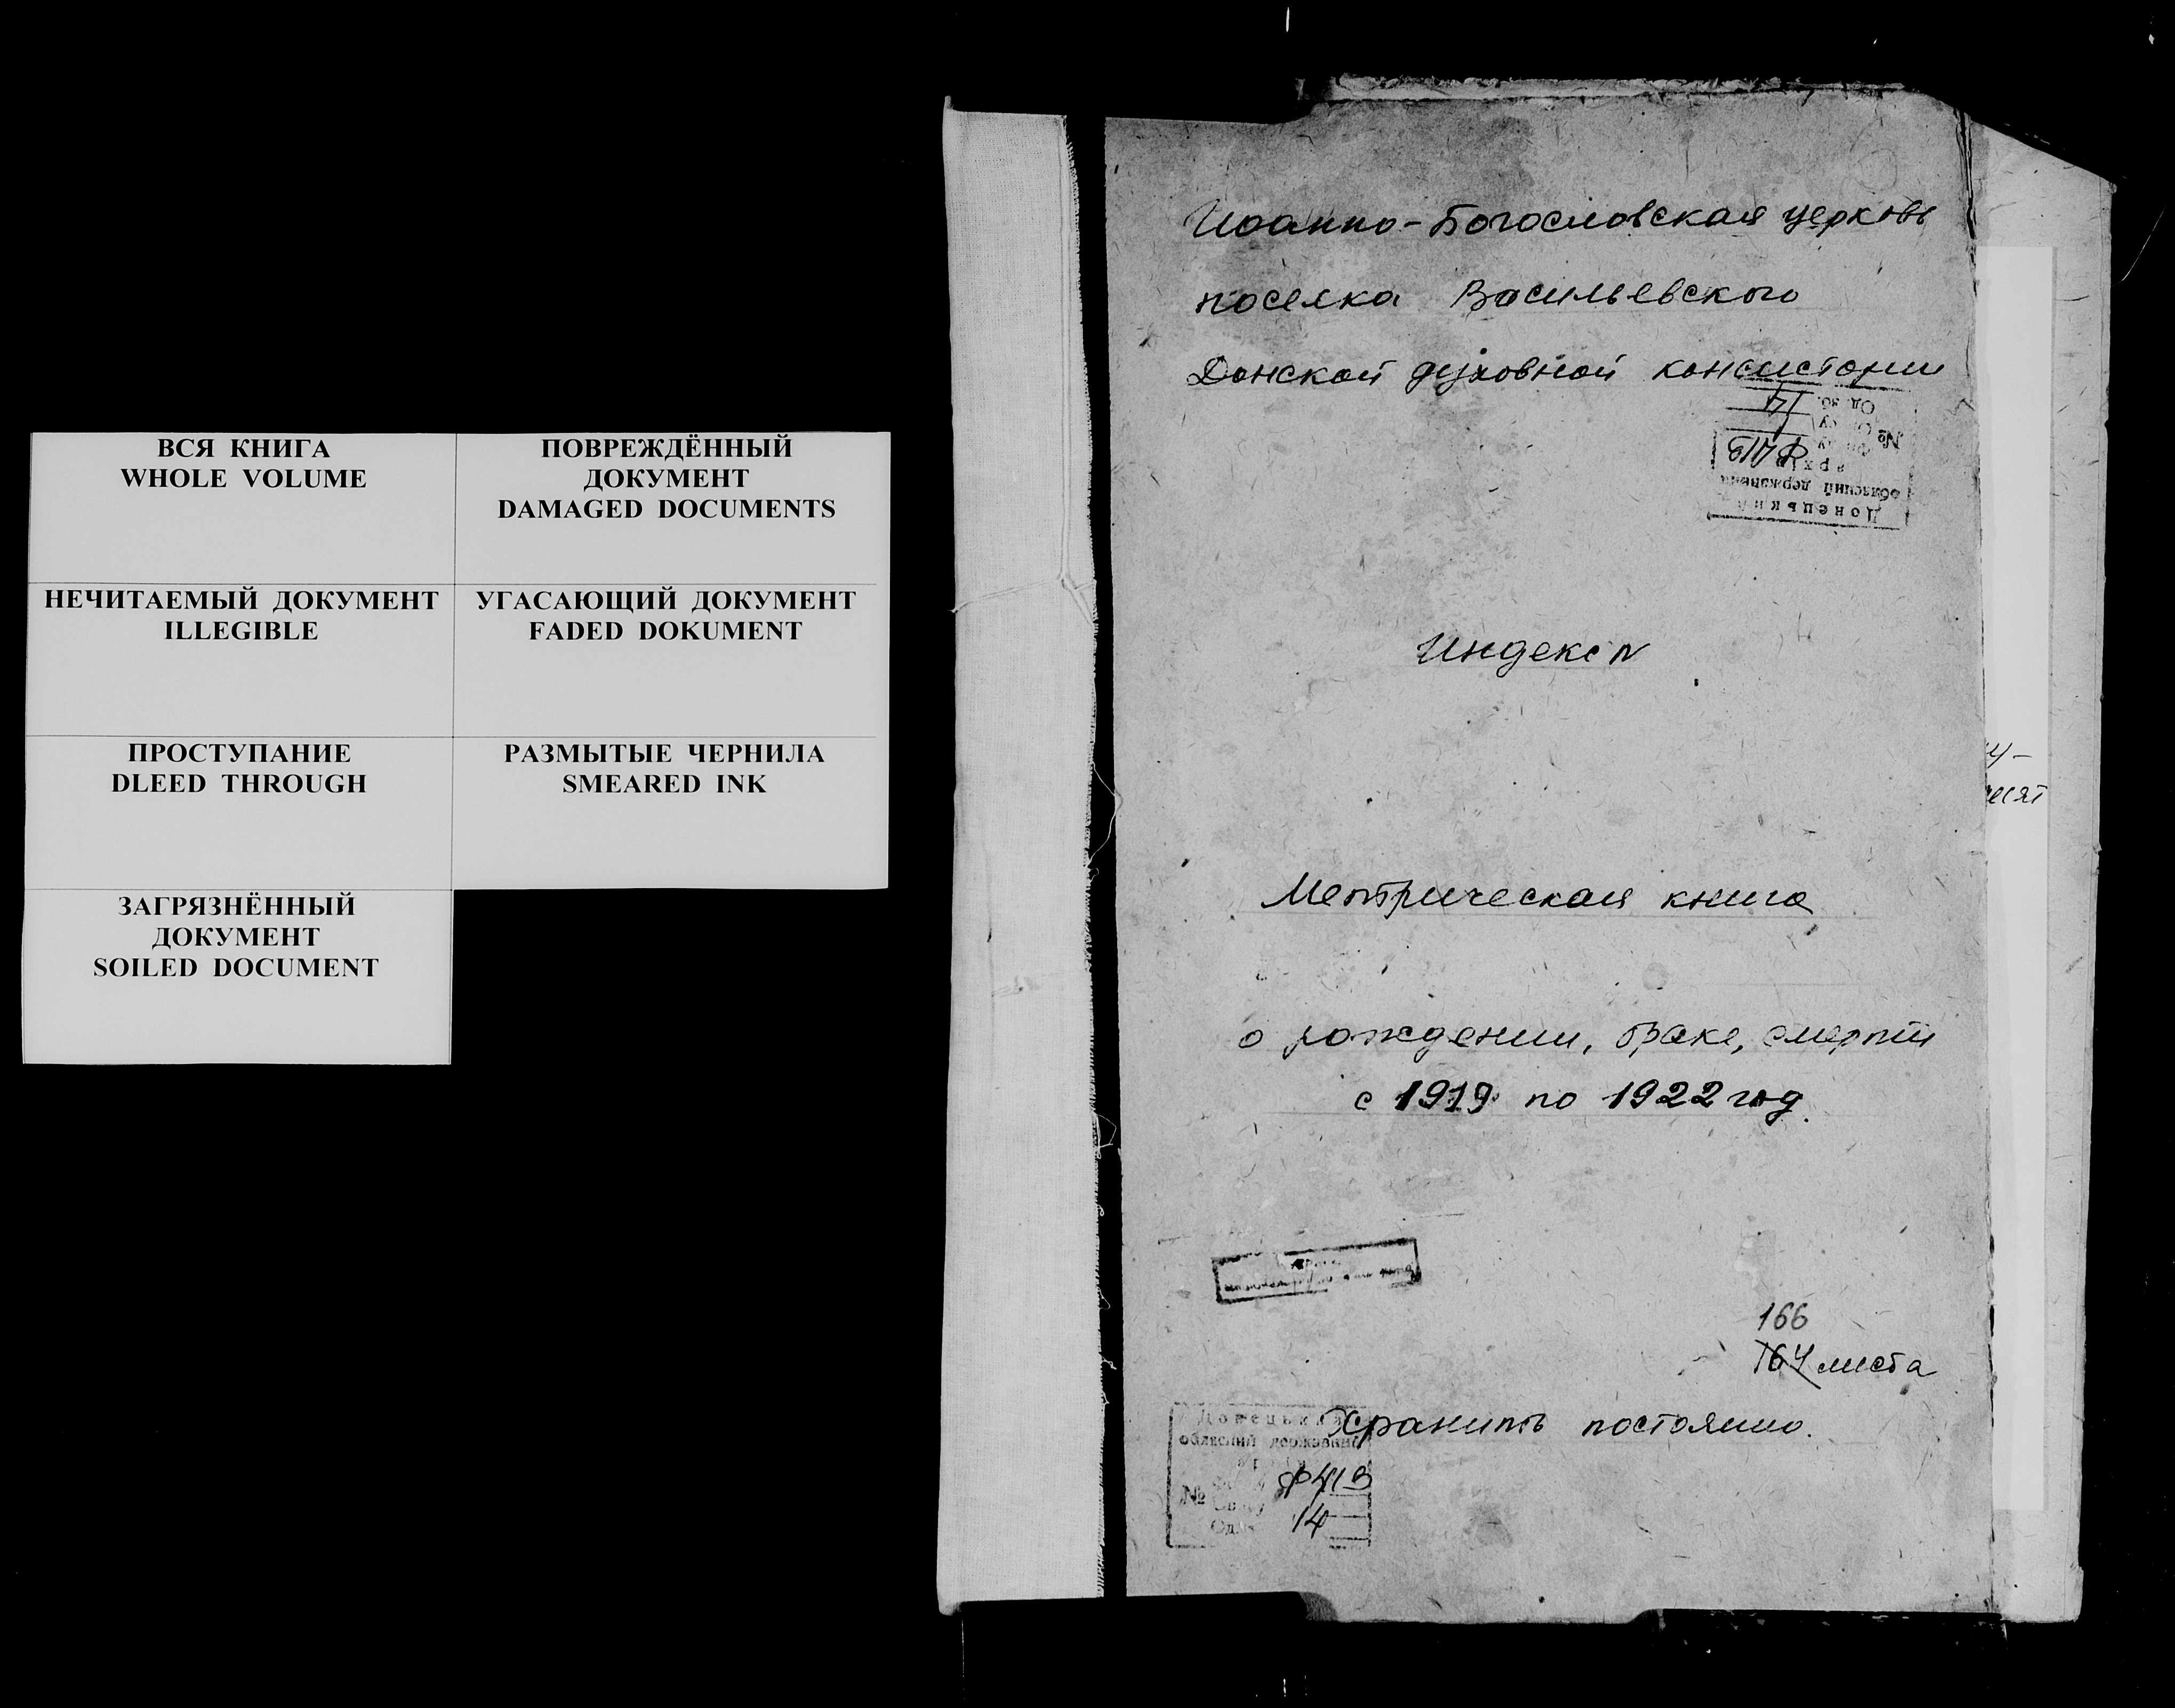 ВСЯ КНИГА
WHOLE VOLUME
ПОВРЕЖДЁННЫЙ
ДОКУМЕНТ
DAMAGED DOCUMENTS
НЕЧИТАЕМЫЙ ДОКУМЕНТ
ILLEGIBLE
УГАСАЮЩИЙ ДОКУМЕНТ
FADED DOKUMENT
ПРОСТУПАНИЕ
DLEED THROUGH
РАЗМЫТЫЕ ЧЕРНИЛА
SMEARED INK
ЗАГРЯЗНЁННЫЙ
ДОКУМЕНТ
SOILED DOCUMENT
Иоанно-Богословская церковь
поселка Васильевского
Донской духовной консистории
Донецький
обласний державний
архів
№
Од. зб. 14
Индекс №
Метрическая книга
о рождении, браке, смерти
с 1919 по 1922 год.
166
164 листа
Хранить постоянно.
Донецький
обласний державний
№
Ф413
14